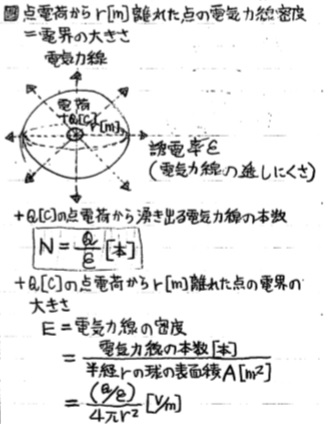 図 点電荷からr[m]離れた点の電気力線密度
＝電界の大きさ
電気力線
電荷
+Q[C]
r[m]
誘電率ε
(電気力線の通しにくさ)
+Q[C]の点電荷から湧き出る電気力線の本数
N = Q/ε [本]
+Q[C]の点電荷からr[m]離れた点の電界の
大きさ
E = 電気力線の密度
= 電気力線の本数[本] / 半径rの球の表面積A[m²]
= (Q/ε) / 4πr² [V/m]